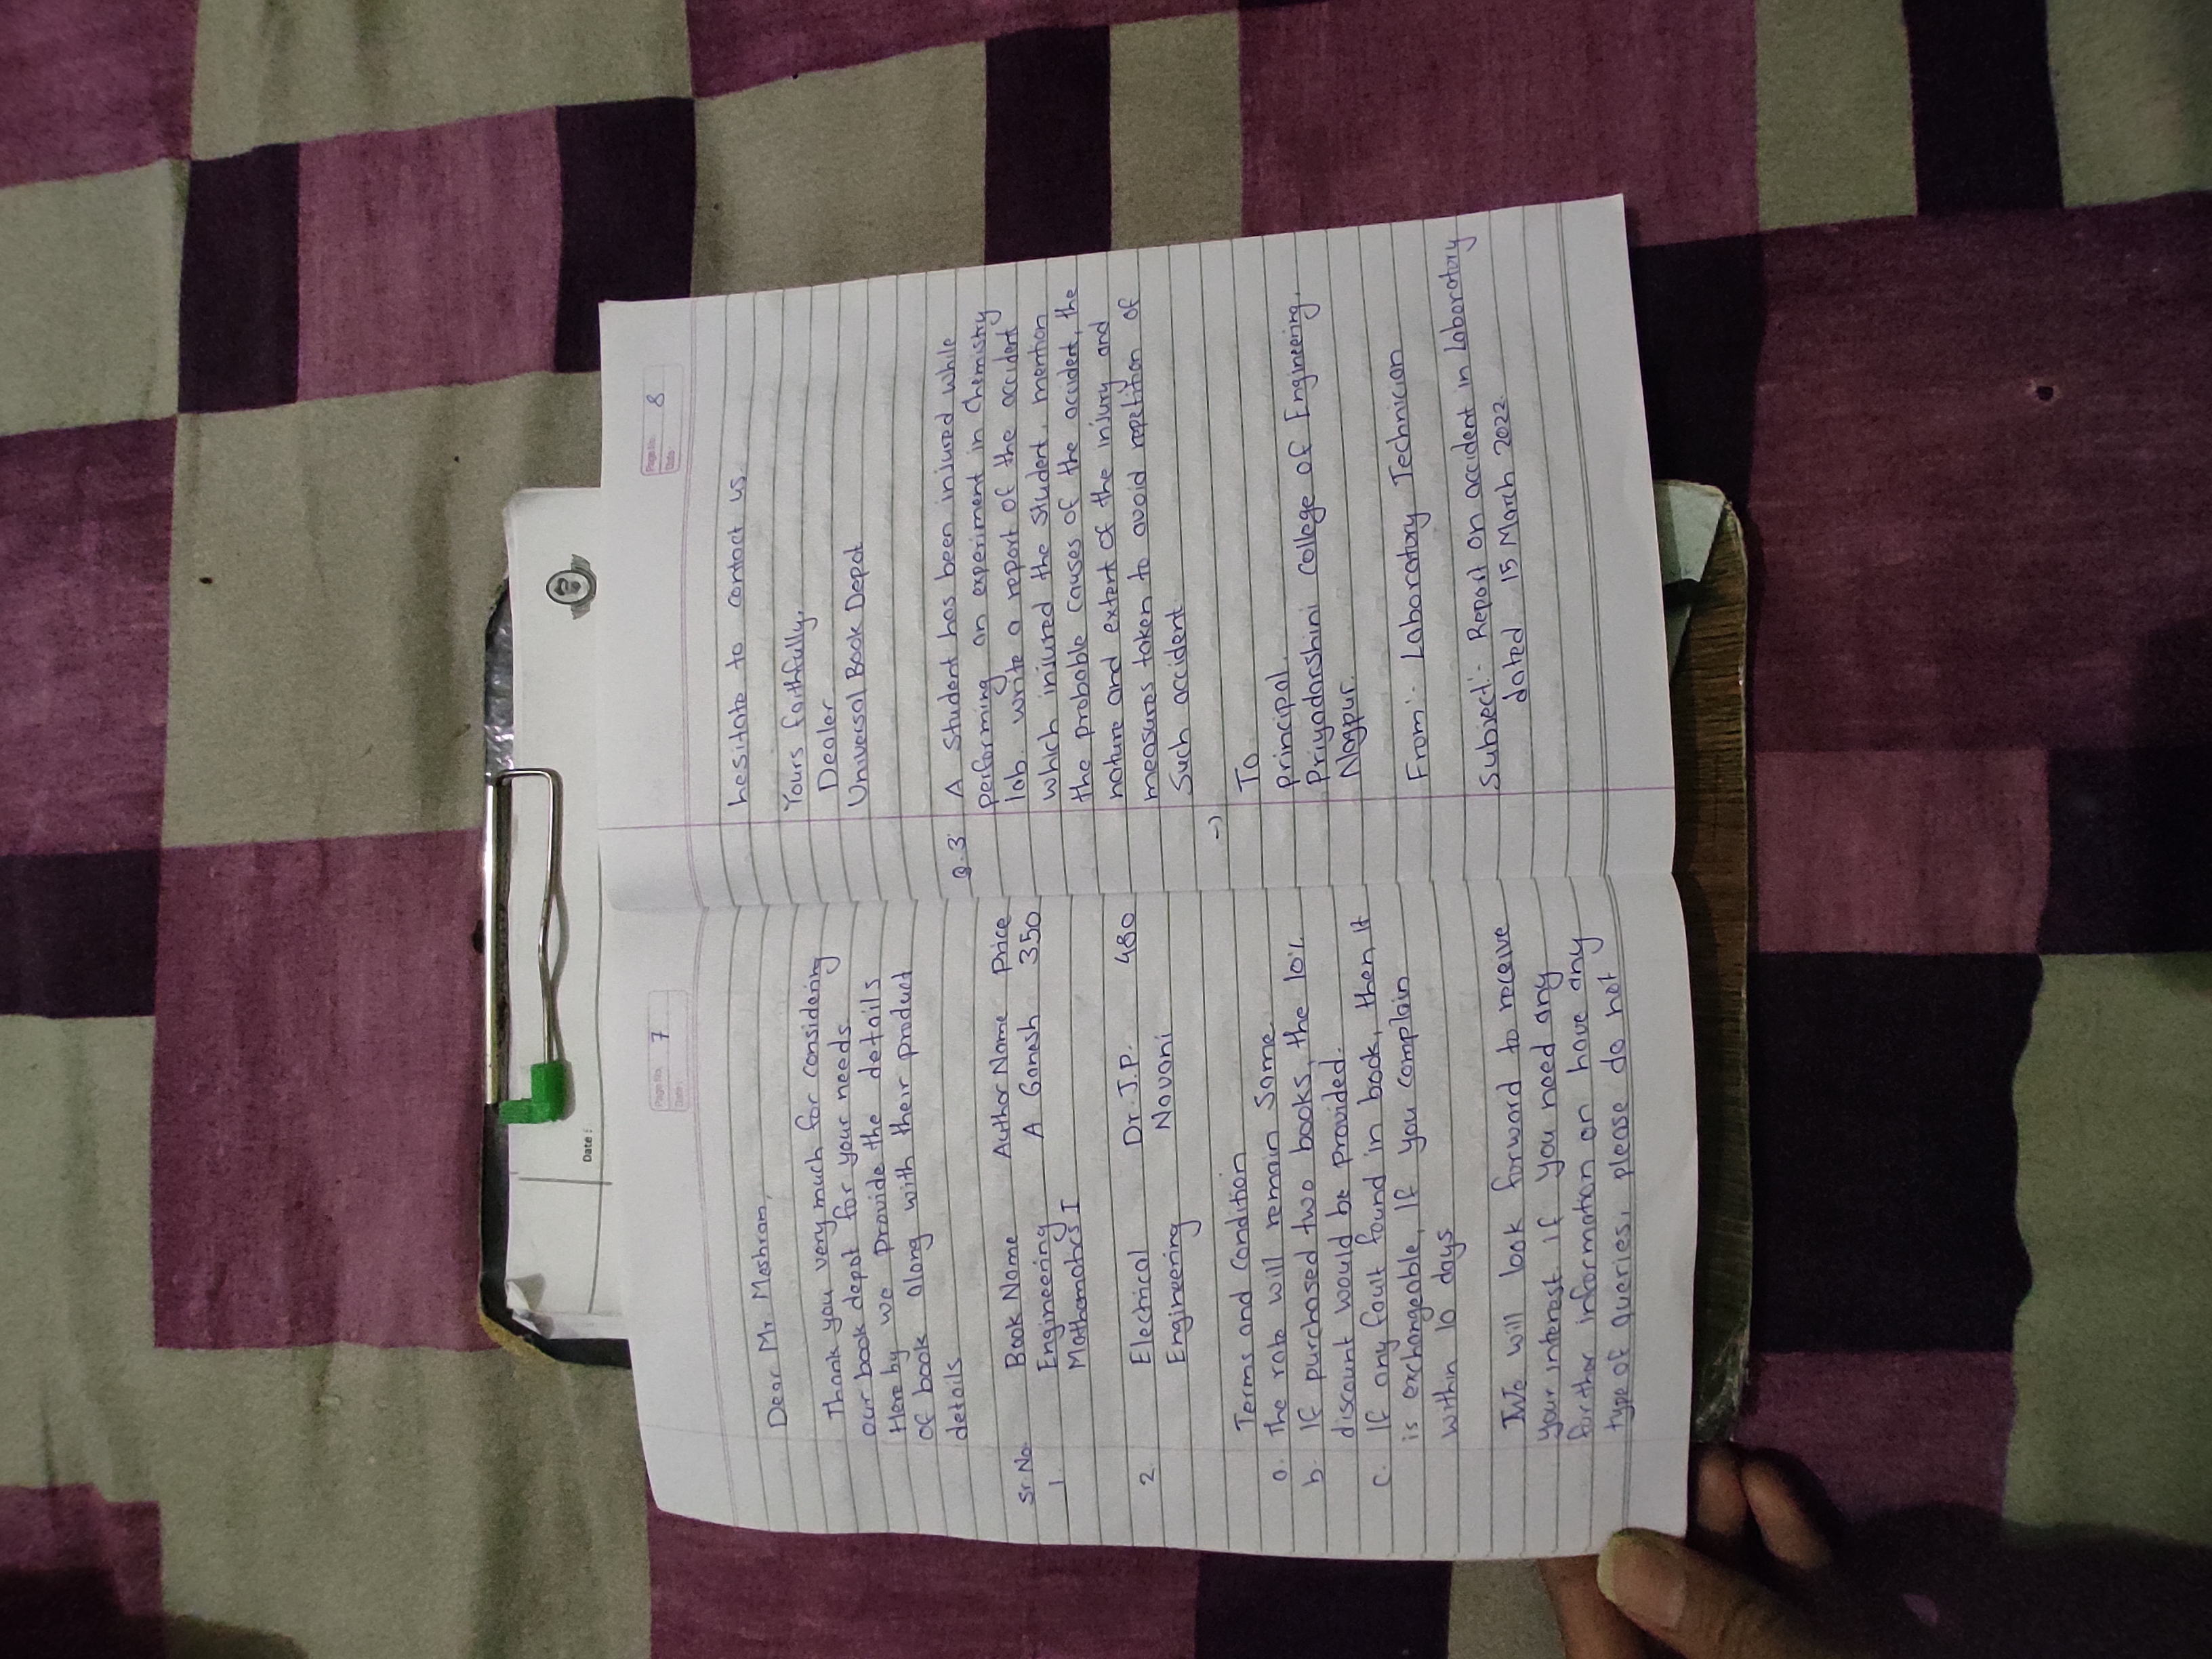 Date :
Page No. 7
Date :
Dear Mr. Meshram,
Thank you very much for considering
our book depot for your needs
Here by we provide the details
of book along with their product
details
Sr. No. Book Name Author Name Price
1. Engineering A Ganesh 350
Mathematics I
2. Electrical Dr. J.P. 480
Engineering Navani
Terms and Condition
a. The rate will remain Same.
b. If purchased two books, the 10%
discount would be provided.
c. If any fault found in book, then it
is exchangeable, If you complain
within 10 days
We will look forward to receive
your interest. if you need any
further information on have any
type of queries, please do not
Page No. 8
Date :
hesitate to contact us.
Yours faithfully,
Dealer
Universal Book Depot
Q.3 A Student has been injured while
performing an experiment in Chemistry
lab. write a report of the accident
which injured the student. mention
the probable causes of the accident, the
nature and extent of the injury and
measures taken to avoid repetition of
Such accident.
→
To
principal.
Priyadarshini College of Engineering.
Nagpur.
From:- Laboratory Technician
Subject:- Report on accident in Laboratory
dated 15 March 2022.